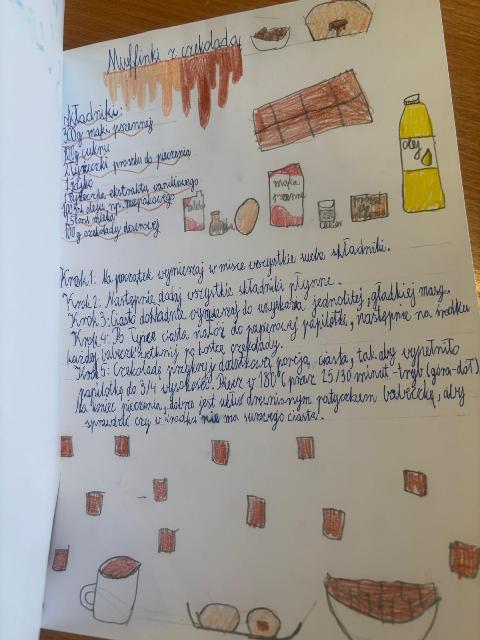 Muffinki z czekoladą
składniki:
300g mąki pszennej
100g cukru
2 łyżeczki proszku do pieczenia
1 jajko
1 łyżeczka ekstraktu waniliowego
oleju np. rzepakowego
mleka
100g czekolady
olej
mąka
Krok 1: Na początek wymieszaj w misce wszystkie suche składniki.
Krok 2: Następnie dodaj wszystkie składniki płynne.
Krok 3: Ciasto dokładnie wymieszaj do uzyskania jednolitej, gładkiej masy.
Krok 4: Po łyżce ciasta nałóż do papierowej papilotki, następnie na środku
każdej po kostce czekolady.
Krok 5: Czekoladę przykryj dodatkową porcją ciasta, tak aby wypełniło
papilotkę do 3/4 wysokości. Piecz w 180°C przez 25/30 minut - tryb (góra-dół)
Na koniec pieczenia, dobrze jest wbić drewnianym patyczkiem babeczkę, aby
sprawdzić czy w środku nie ma surowego ciasta.